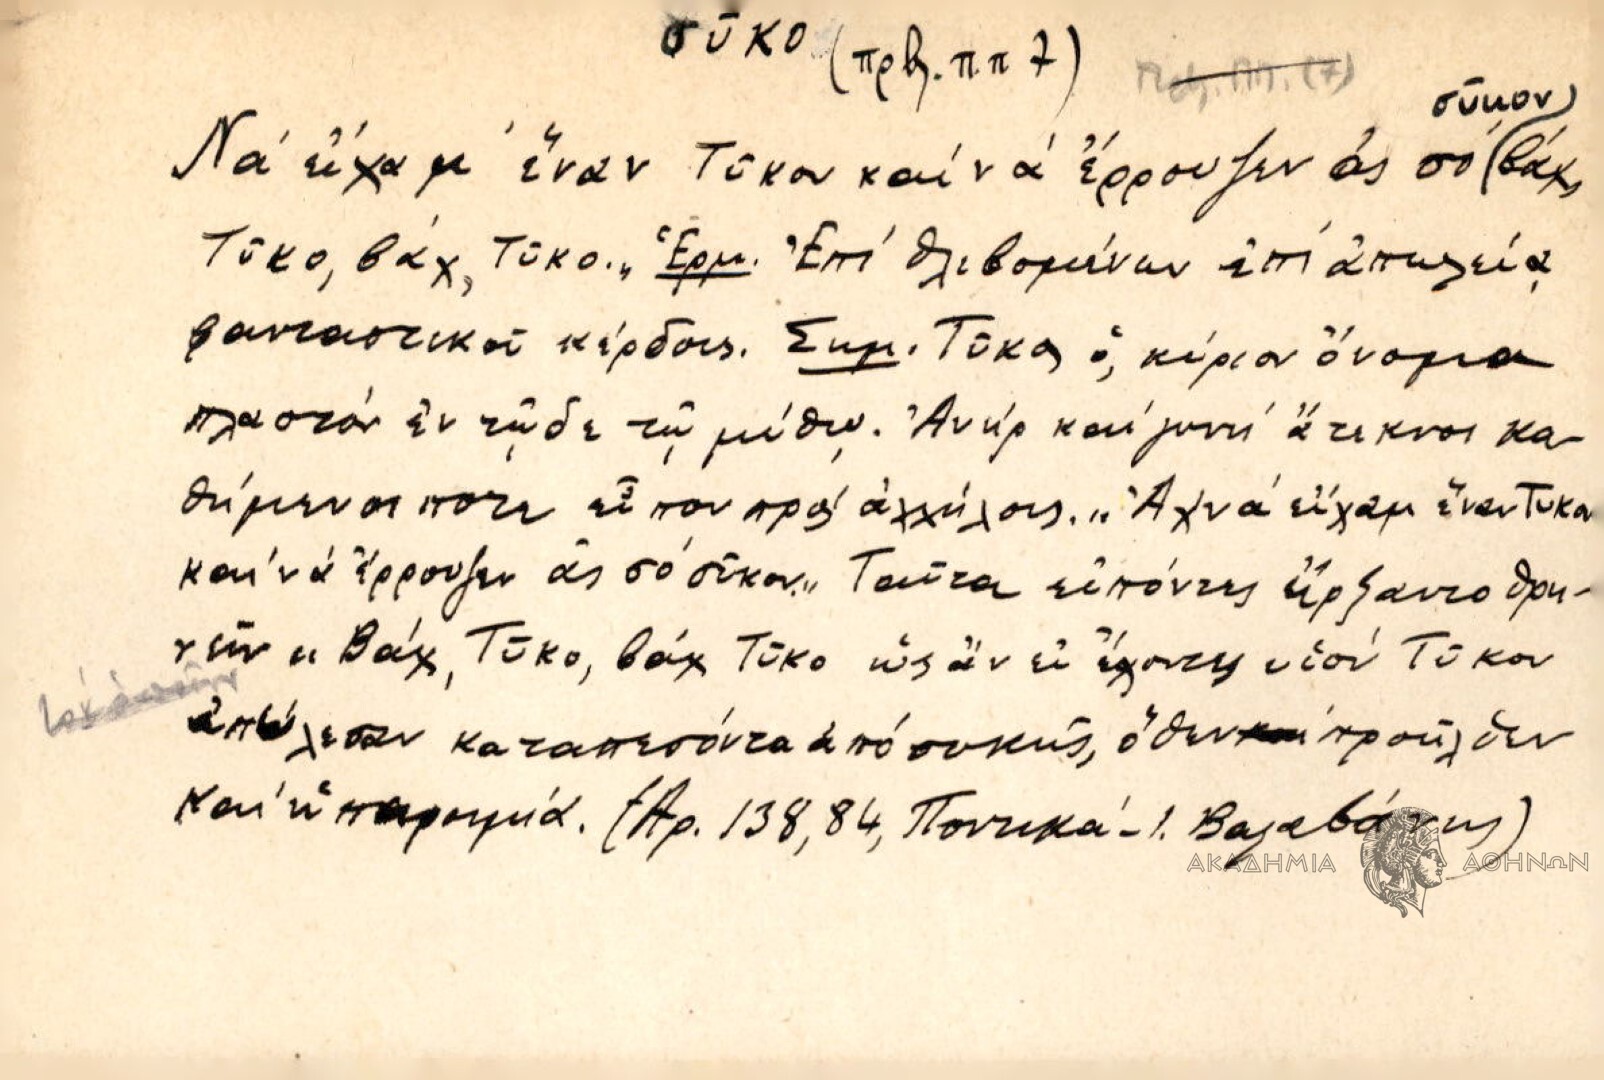 σῦκο (πρβ. π.π 7)
σῦκον)
Νά εἴχαμ' ἕναν Τῦκον καί νά ἔρρουξεν ἀς σό (βάχ,
Τῦκο, βάχ, Τῦκο.„ Ἑρμ. Ἐπί θλιβομένων ἐπί ἀπωλείᾳ
φανταστικοῦ κέρδους. Σημ. Τῦκος ὁ, κύριον ὄνομα
πλαστόν ἐν τῷδε τῷ μύθῳ. Ἀνήρ καί γυνή ἄτεκνοι κα-
θήμενοι ποτε εἶπον πρός ἀλλήλους. „Ἄχ νά εἴχαμ ἕναν Τῦκον
καί νά ἔρρουξεν ἀς σό σῦκον„ Ταῦτα εἰπόντες ἤρξαντο θρη-
νεῖν „ Βάχ, Τῦκο, βάχ Τῦκο ὡς ἄν εἰ ἔχοντες υἱόν Τῦκον
ἀπώλεσαν καταπεσόντα ἀπό συκῆς, ὅθεν προῆλθεν
καί ἡ παροιμία. (Ἀρ. 138, 84, Ποντικά - Ι. Βαλαβάνης)
ΑΚΑΔΗΜΙΑ ΑΘΗΝΩΝ